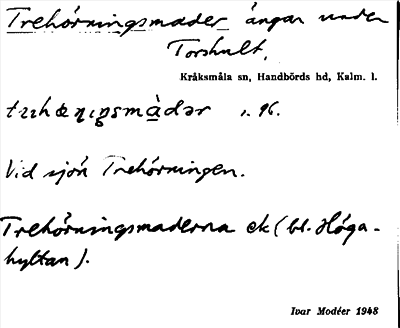 Trehörningsmader ängar under
Torshult.
Kråksmåla sn, Handbörds hd, Kalm. l.
1. 96.
Vid sjön Trehörningen.
Trehörningsmaderna ek (bl. Höga-
hyltan).
Ivar Modéer 1948